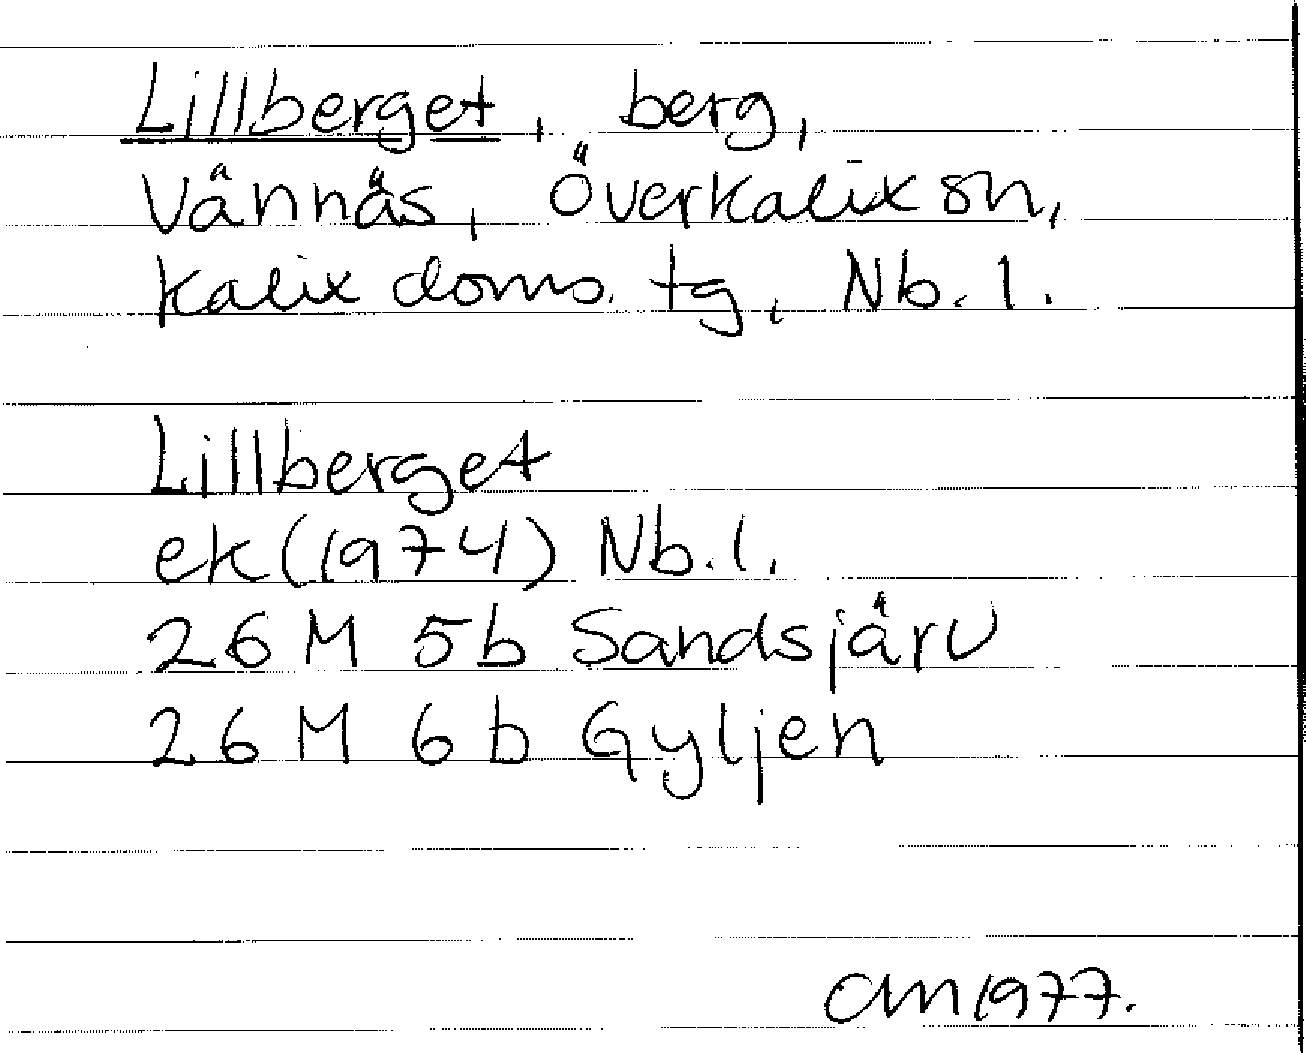 Lillberget, berg,
Vännäs, Överkalix sn,
Kalix doms. tg, Nb. l.
Lillberget
ek (1974) Nb. l.
26 M 5b Sandsjärv
26 M 6b Gyljen
AM 1977.